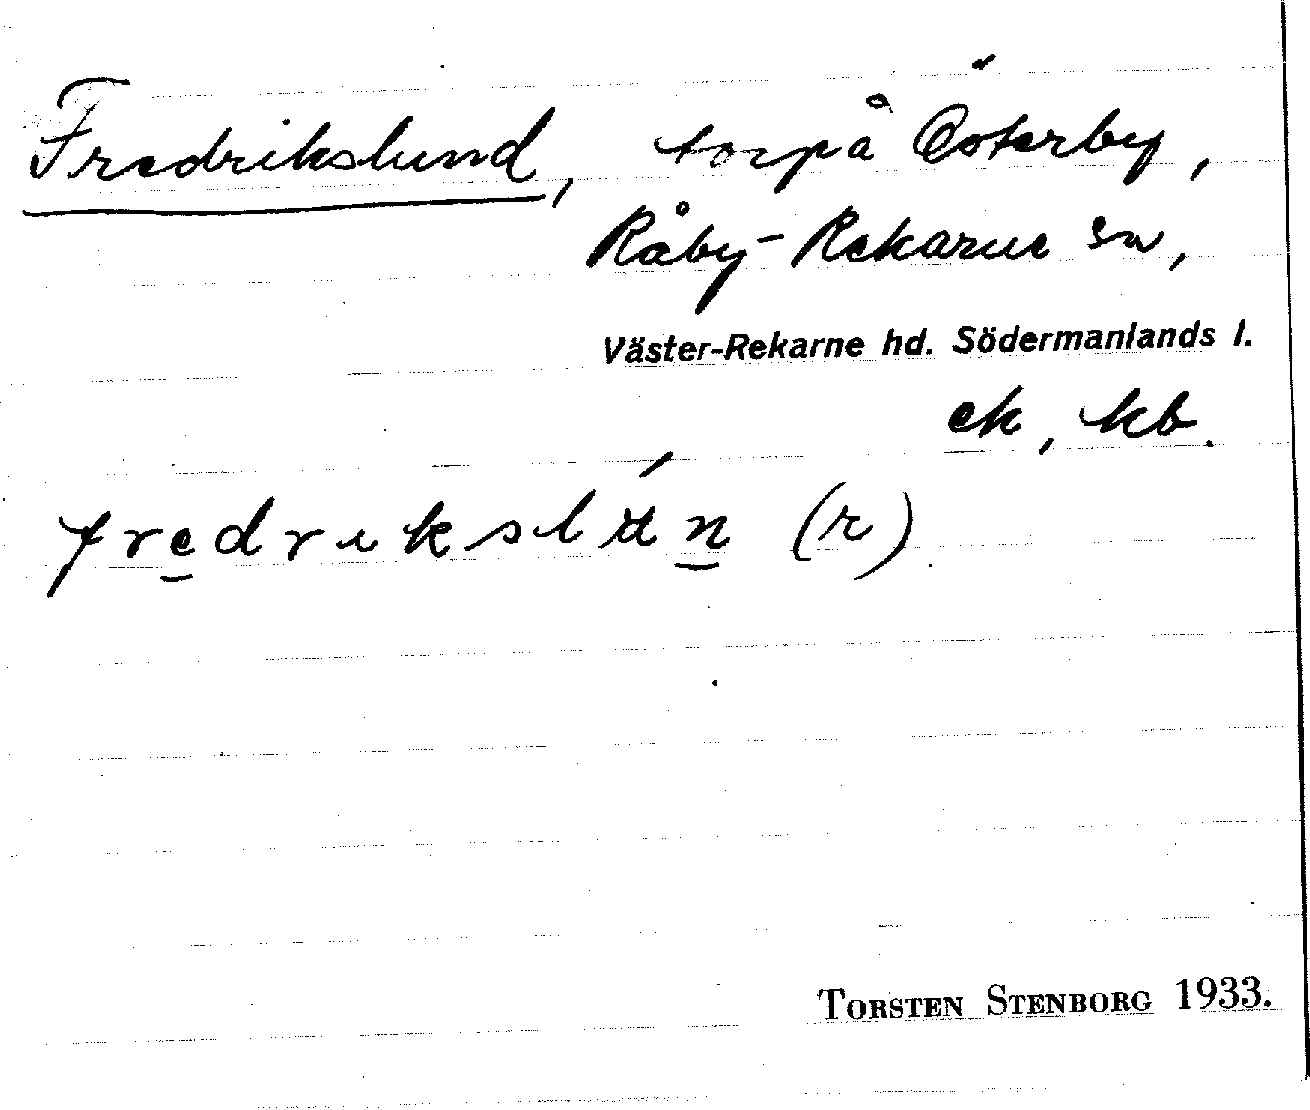 Fredrikslund, torp å Österby,
Råby-Rekarne sn,
Väster-Rekarne hd. Södermanlands l.
ek, kb.
fredrikslu̇́n (r)
TORSTEN STENBORG 1933.